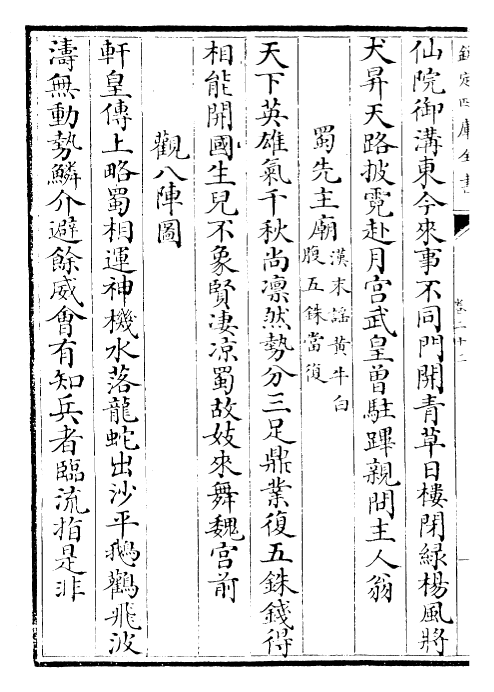 欽定四庫全書
卷二十二
仙院御溝東今來事不同門開青草日樓閉緑楊風將
犬昇天路披霓赴月宫武皇曽駐蹕親問主人翁
蜀先主廟漢末謡黄牛白
腹五銖當復
天下英雄氣千秋尚凛然勢分三足鼎業復五銖錢得
相能開國生兒不象賢凄凉蜀故妓來舞魏宫前
觀八陣圖
軒皇傳上略蜀相運神機水落龍蛇出沙平鵝鸛飛波
濤無動勢鱗介避餘威㑹有知兵者臨流指是非